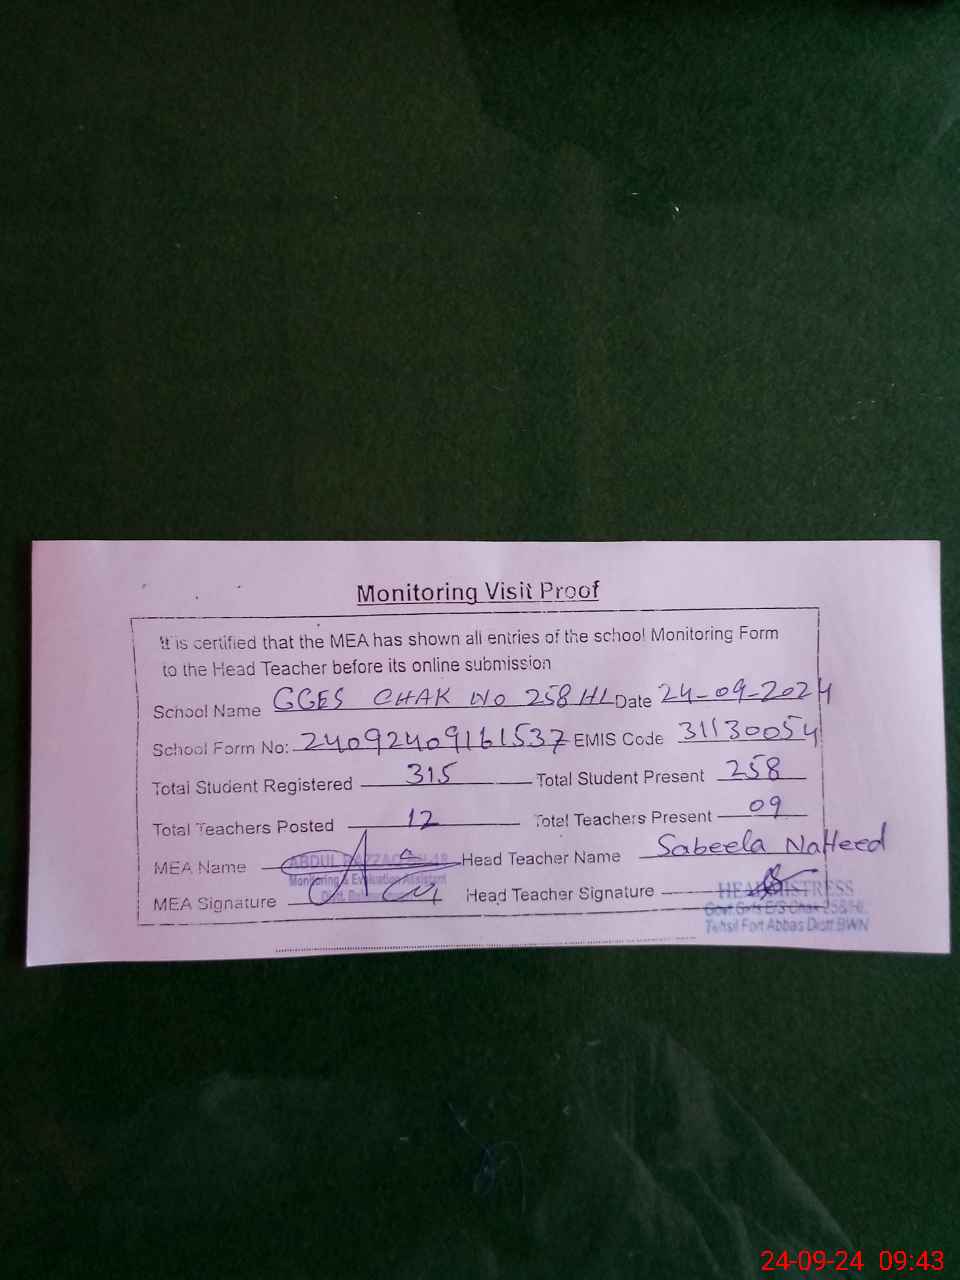 Monitoring Visit Proof
It is certified that the MEA has shown all entries of the school Monitoring Form
to the Head Teacher before its online submission
School Name GGES CHAK NO 258 HL Date 24-09-2024
School Form No: 24092409161537 EMIS Code 31130054
Total Student Registered 315 Total Student Present 258
Total Teachers Posted 12 Total Teachers Present 09
MEA Name ABDUL RAZZAQ Head Teacher Name Sabeela NaHeed
Monitoring & Evaluation Assistant
MEA Signature Head Teacher Signature
HEADMISTRESS
Govt. Girls E/S Chak 258/HL
Tehsil Fort Abbas Distt BWN
24-09-24 09:43